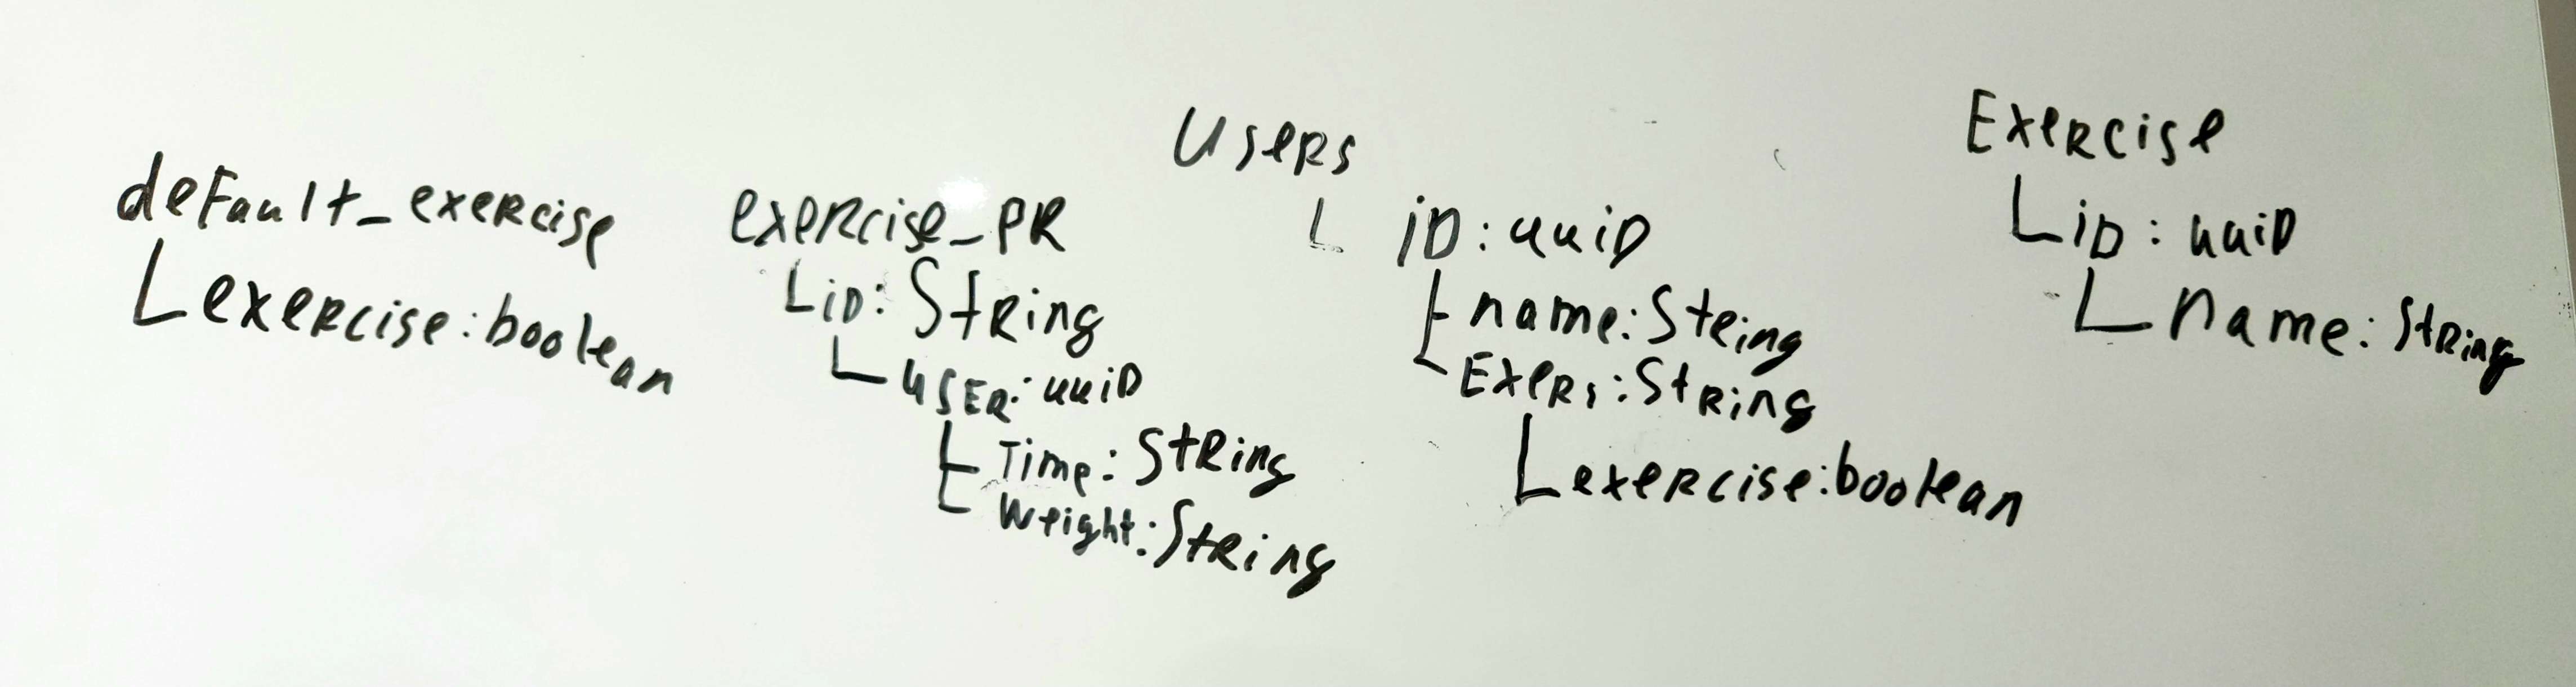 default_exercise
exercise: boolean
exercise_PR
iD: String
USER: uuiD
Time: String
Weight: String
Users
iD: uuiD
name: String
Exers: String
exercise: boolean
Exercise
iD: uuiD
name: String